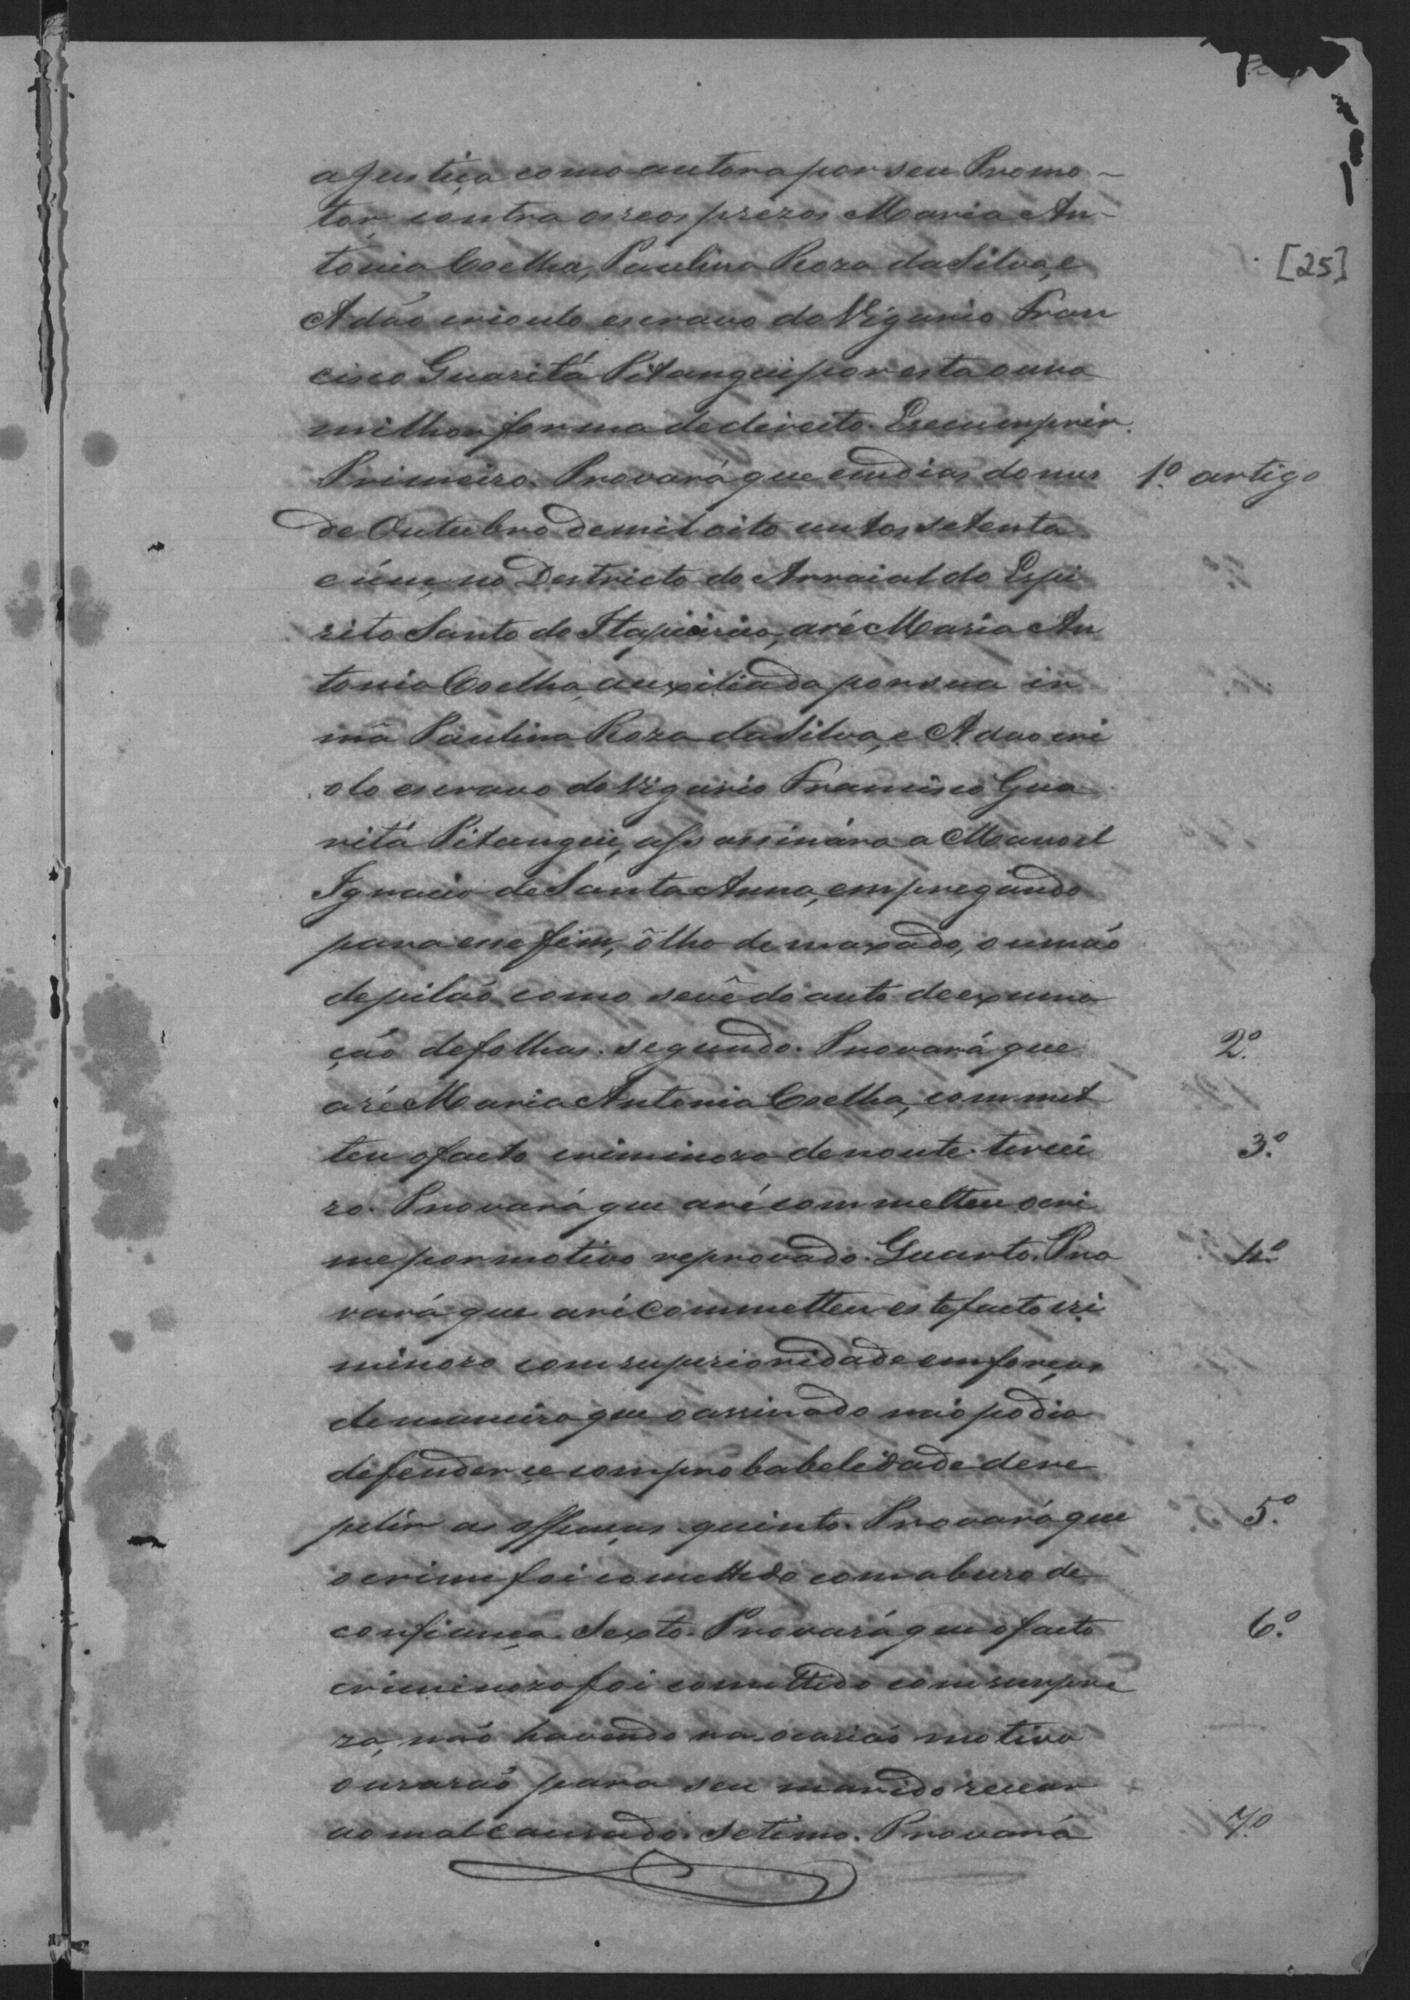 [25]
a Justiça como autora por seu Promo-
tor, contra os reos prezos Maria An-
tonia Coelha, Paulina Roza da Silva, e
Adão crioulo escravo do Vigario Fran
cisco Guaritá Pitangui por esta ou na
milhor forma de direito. Esecumprir.
Primeiro. Provará que em dias do mes
1º artigo
de Outubro de mil oito centos setenta
e úm, no Destricto do Arraial do Espi
rito Santo do Itapicirica, a ré Maria An
tonia Coelha, auxiliada por sua ir
mã Paulina Roza da Silva, e Adao cri
olo escravo do Vigario Francisco Gua
ritá Pitangui, assassinára a Manoel
Ignacio de Santa Anna, empregando
para esse fim, ôlho de maxado, ou mão
de pilão, como se vê do auto de exuma
ção de folhas. segundo. Provará que
2º.
a ré Maria Antonia Coelha, commet
teu o facto criminozo de noute. tercei
3º.
ro. Provará que a ré commetteu o cri
me por motivo reprovado. Quarto. Pro
4º.
vará que a ré commetteu este facto cri
minozo com superioridade em forças
de maneira que o assinado não podia
defender ce com probabelidade de re
petir as offenças. quinto. Provará que
5º.
o crime foi comettido com abuzo de
confiança. Sexto. Provará que o facto
6º.
criminozo foi comettido com surpre
za, não havendo na ocasião motivo
ou razão para seu marido recear
ao mal causado. Setimo. Provará
7º